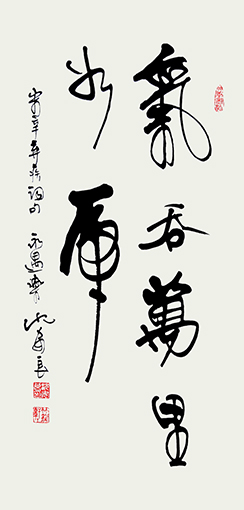 氣吞萬里
如虎
宋辛弃疾詞句 永遇樂